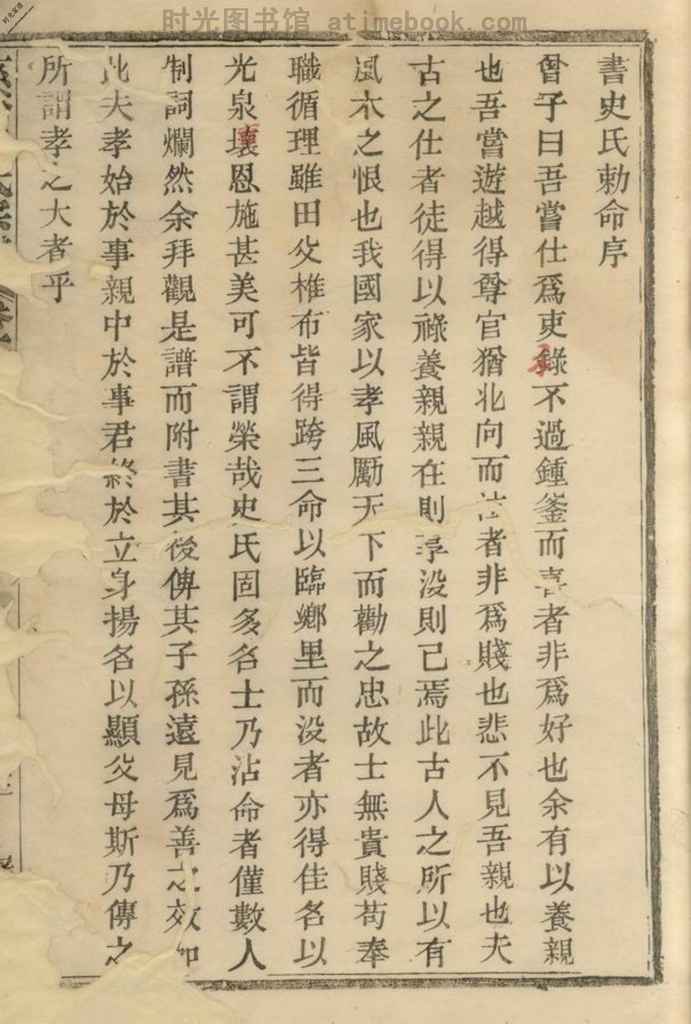 时光图书馆 atimebook.com
書史氏勅命序
曾子曰吾嘗仕爲吏錄不過鍾釜而喜者非爲好也余有以養親
也吾嘗遊越得尊官猶北向而泣者非爲賤也悲不見吾親也夫
古之仕者徒得以祿養親親在則尋没則已焉此古人之所以有
風木之恨也我國家以孝風勵天下而勸之忠故士無貴賤苟奉
職循理雖田父椎布皆得跨三命以臨鄉里而没者亦得佳名以
光泉壤恩施甚美可不謂榮哉史氏固多名士乃沾命者僅數人
制詞爛然余拜觀是譜而附書其後俾其子孫遠見爲善之效
此夫孝始於事親中於事君終於立身揚名以顯父母斯乃傳之
所謂孝之大者乎